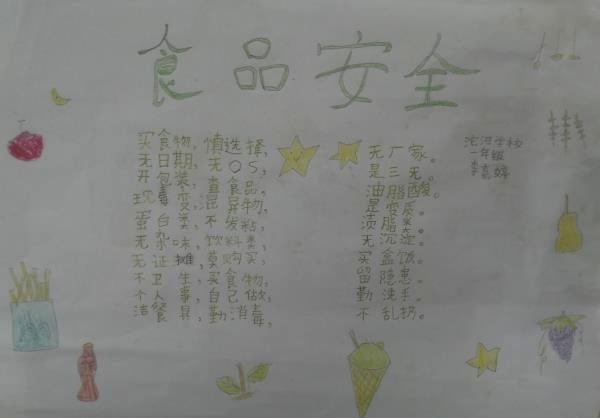 食品安全
买食物,慎选择,无厂家。
无日期,无QS,是三无。
开包装,查食品,油脂酸。
现毒变,混异物,是变质。
蛋白类,不发粘,
无杂味,饮料类,无沉淀。
无证摊,莫购买,买盒饭。
不卫生,买食物,留隐患。
个人事,自己做,勤洗手。
洁餐具,勤消毒,不乱拐。
一年级